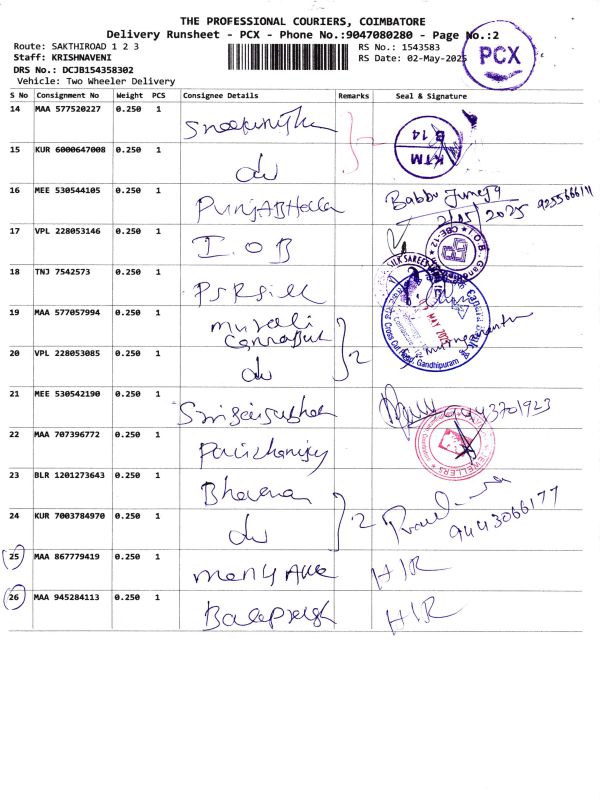 THE PROFESSIONAL COURIERS, COIMBATORE
Delivery Runsheet - PCX - Phone No.:9047080280 - Page No.:2
Route: SAKTHIROAD 1 2 3
RS No.: 1543583
Staff: KRISHNAVENI
RS Date: 02-May-2025
PCX
DRS No.: DCJB154358302
Vehicle: Two Wheeler Delivery
S No Consignment No Weight PCS Consignee Details Remarks Seal & Signature
14 MAA 577520227 0.250 1
B 14
KTM
15 KUR 6000647008 0.250 1 du
16 MEE 530544105 0.250 1 PunjABHolla Babbu Juneja
2/05/2025 9255666111
17 VPL 228053146 0.250 1 I.O.B
I.O.B., CBE-12
18 TNJ 7542573 0.250 1 PSRSilk
SILK SAREES
19 MAA 577057994 0.250 1 murali
MAY 2025
Cross Cut Road, Gandhipuram
20 VPL 228053085 0.250 1 du 2
21 MEE 530542190 0.250 1 9443701923
22 MAA 707396772 0.250 1
JEWELLERS
23 BLR 1201273643 0.250 1 Bhavana
24 KUR 7003784970 0.250 1 du 2 9443066177
25 MAA 867779419 0.250 1 H/R
26 MAA 945284113 0.250 1 H/R